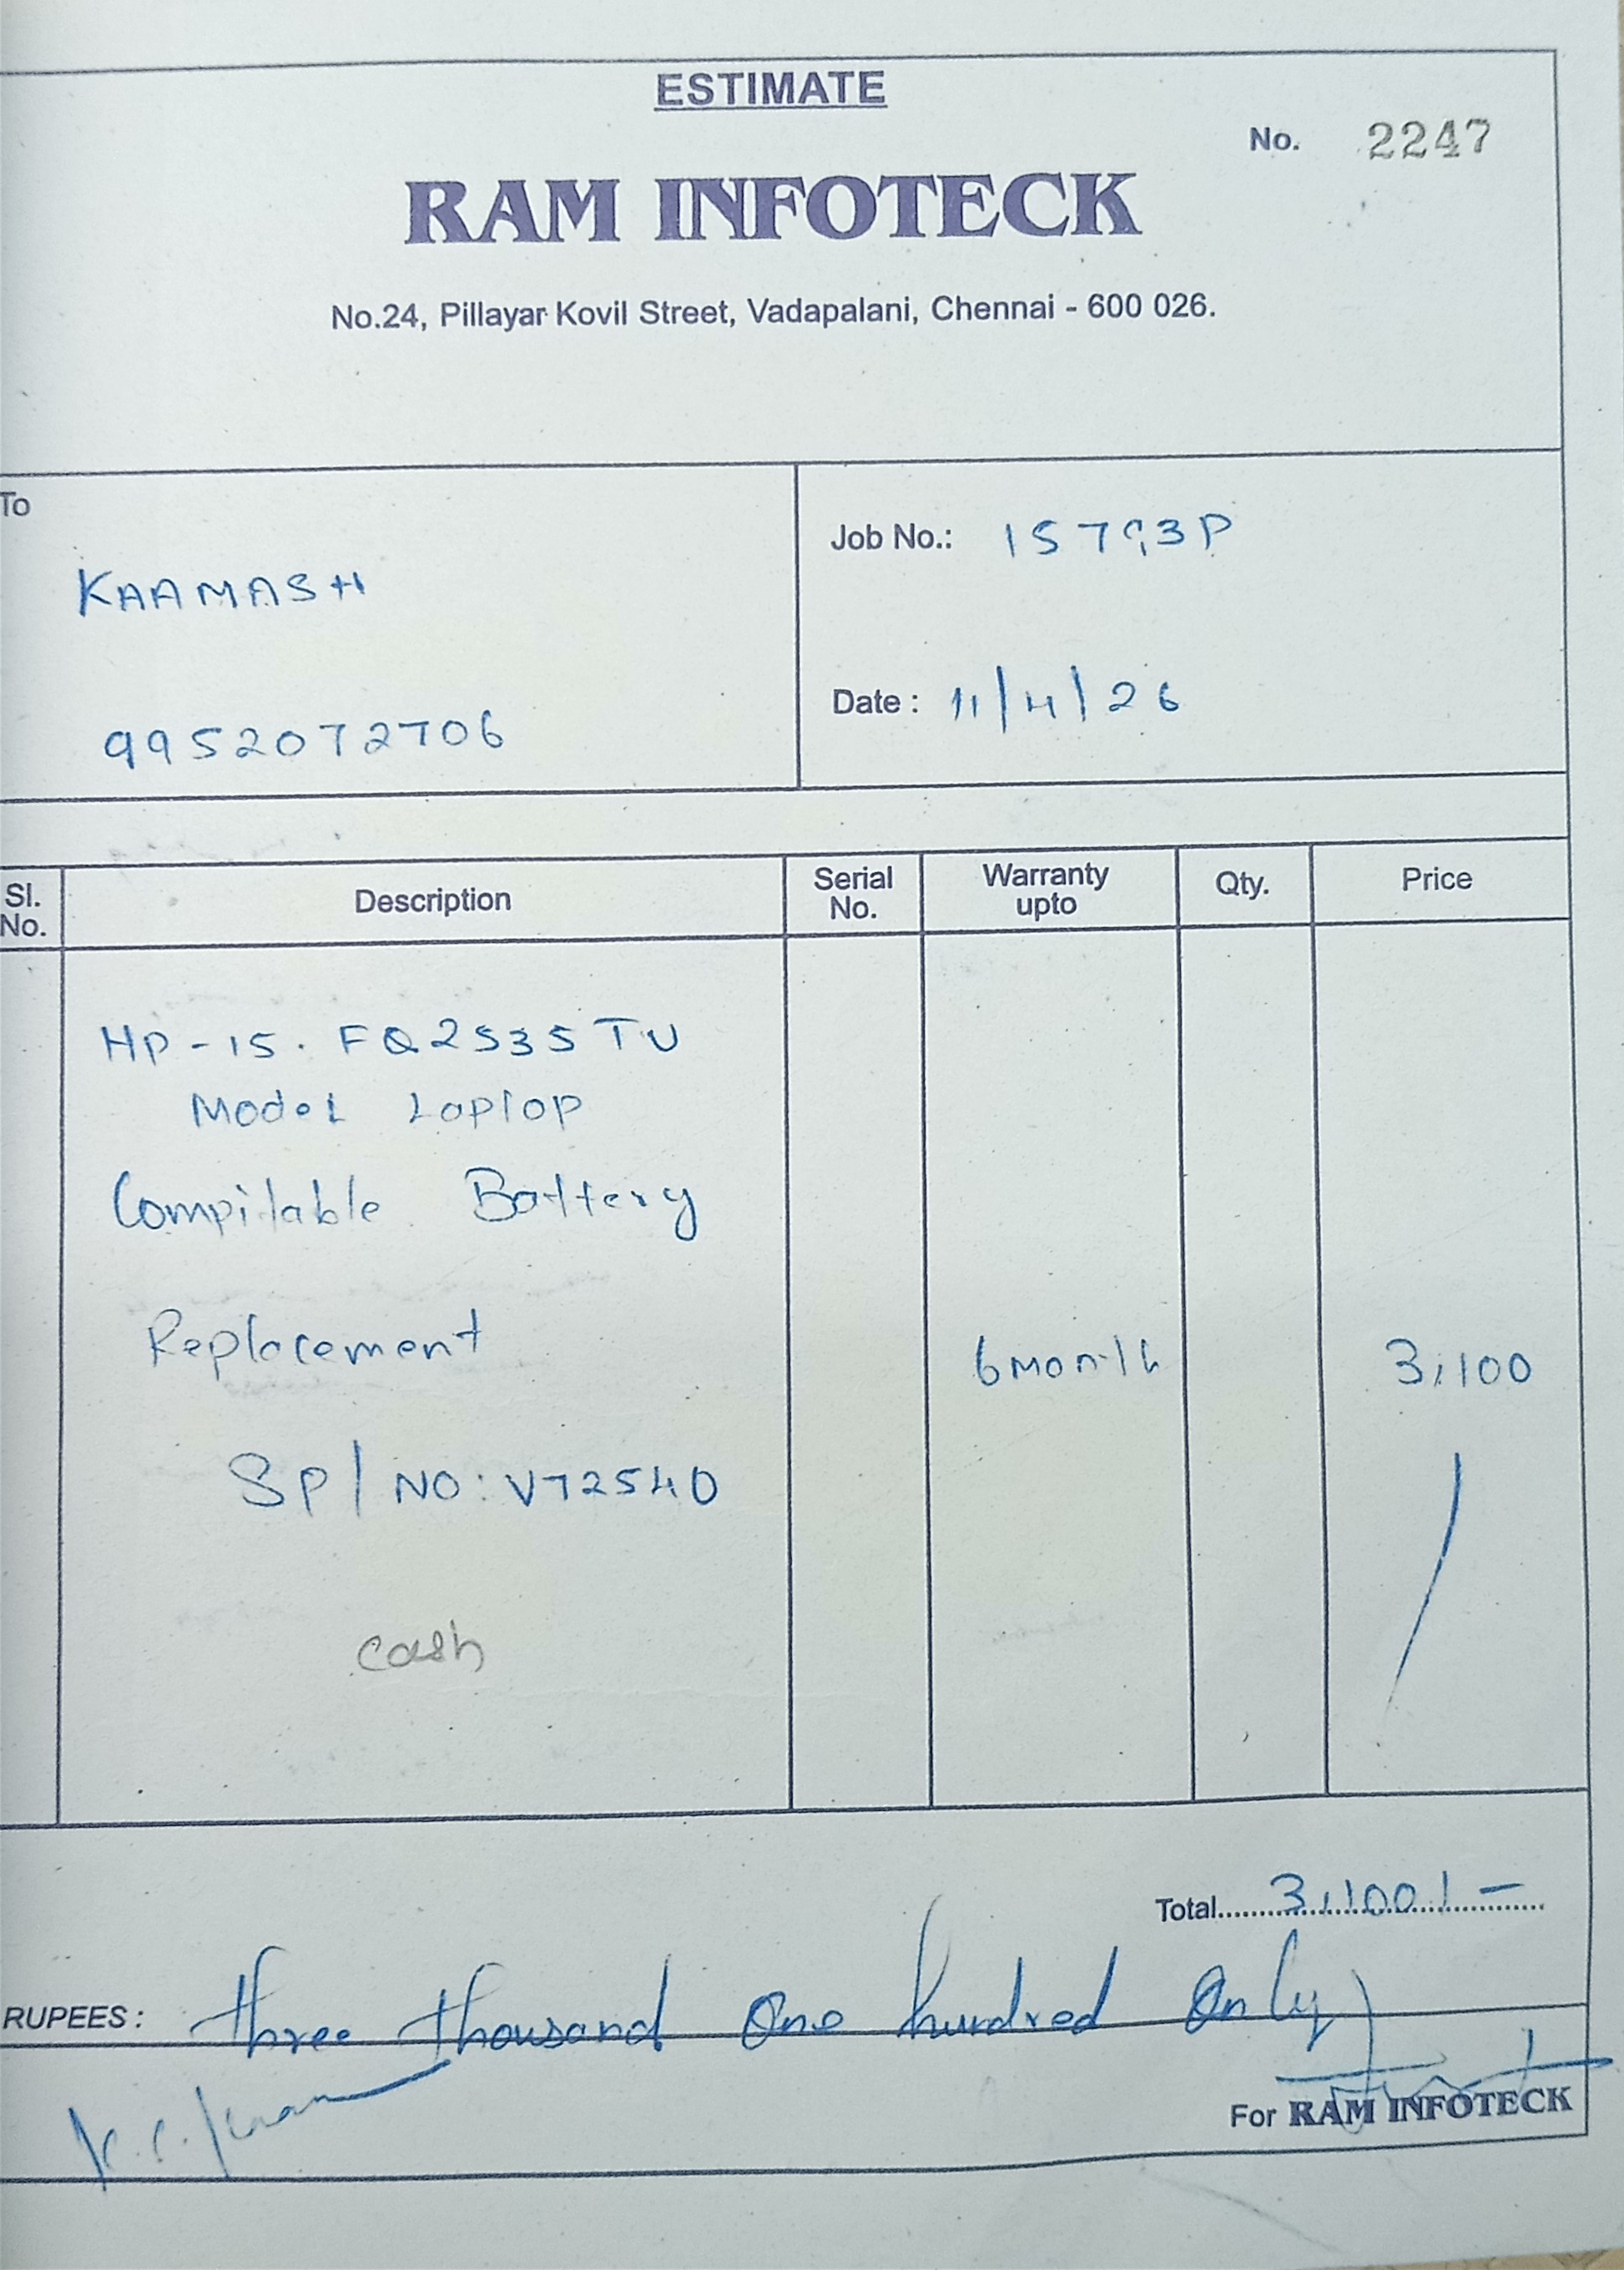 ESTIMATE
No. 2247
RAM INFOTECK
No.24, Pillayar Kovil Street, Vadapalani, Chennai - 600 026.
To
KAAMASH
9952072706
Job No.: 15793P
Date : 11/4/26
Sl. No. Description Serial No. Warranty upto Qty. Price
HP-15. FQ2535TU
Model Laptop
Compitable Battery
Replacement 6 month 3,100
SP/NO: V72540
cash
Total 3,100/-
RUPEES : three thousand One hundred Only
For RAM INFOTECK